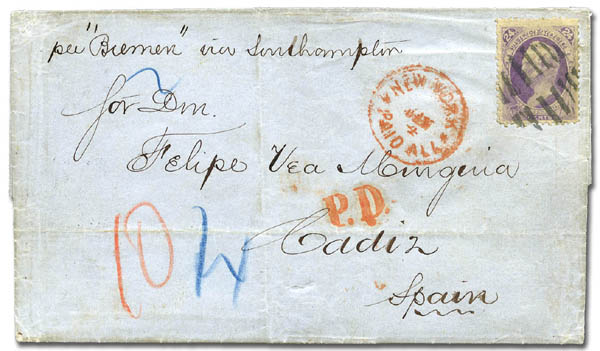 per "Bremen" via Southampton
24
Sör Dn.
Felipe Vea Murguia
NEW YORK
JAN
2
PAID ALL
P.D.
10
Cadiz
Spain